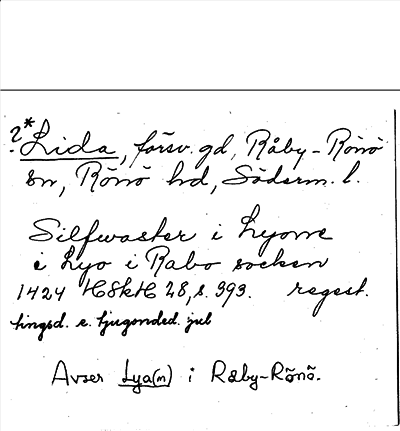 ?*Lida, försv. gd, Råby-Rönö
sn, Rönö hd, Söderm. l.
Silfwaster i Lyome
i Lyo i Rabo socken
1424 HSkH 28, s. 393. regest.
tingsd. e. tjugonded. jul
Avser Lya(m) i Råby-Rönö.